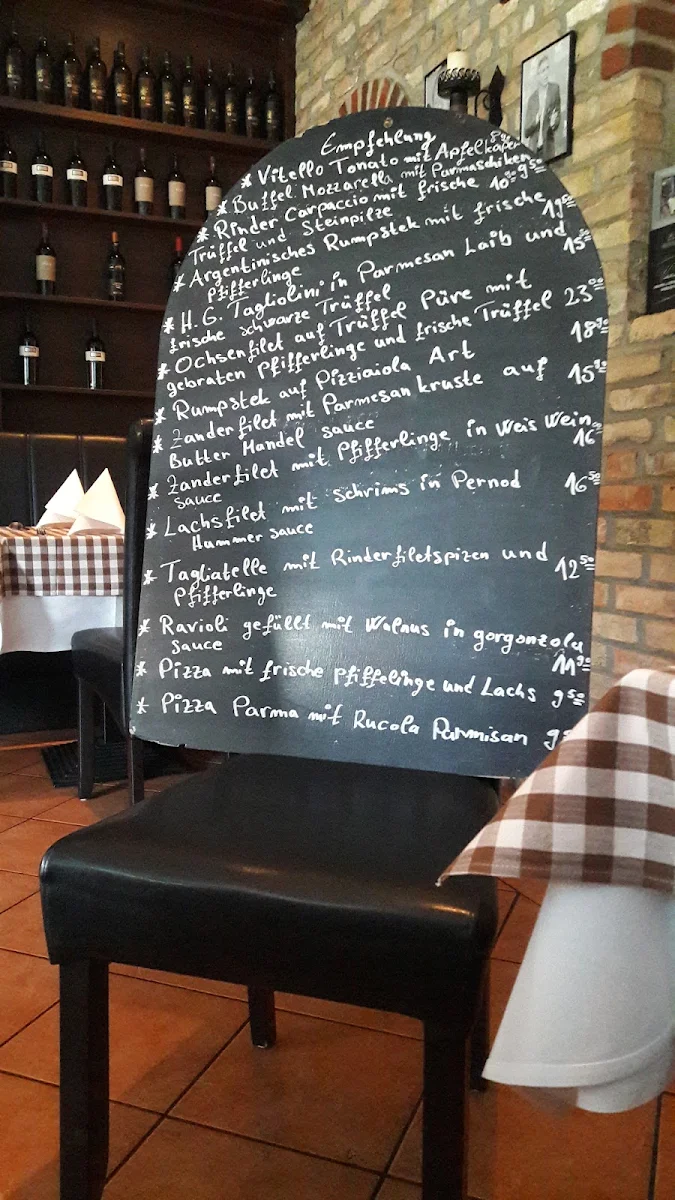 Empfehlung
* Vitello Tonato mit Apfelkapern 8,90
* Buffel Mozzarella mit Parmaschinken 9,50
* Rinder Carpaccio mit frische 10,90
Trüffel und Steinpilze
* Argentinisches Rumpstek mit frische 19,50
Pfifferlinge
* H.G. Tagliolini in Parmesan Laib und 15,50
frische schwarze Trüffel
* Ochsenfilet auf Trüffel Püre mit
gebraten Pfifferlinge und frische Trüffel 23,00
* Rumpstek auf Pizziaiola Art 18,90
* Zanderfilet mit Parmesankruste auf 15,90
Butter Mandel sauce
* Zanderfilet mit Pfifferlinge in Weis Wein
sauce 16
* Lachsfilet mit schrims in Pernod 16,50
Hummer sauce
* Tagliatelle mit Rinderfiletspizen und 12,50
Pfifferlinge
* Ravioli gefüllt mit Walnus in gorgonzola
Sauce 11,90
* Pizza mit frische Pfiffelinge und Lachs 9,50
* Pizza Parma mit Rucola Parmisan